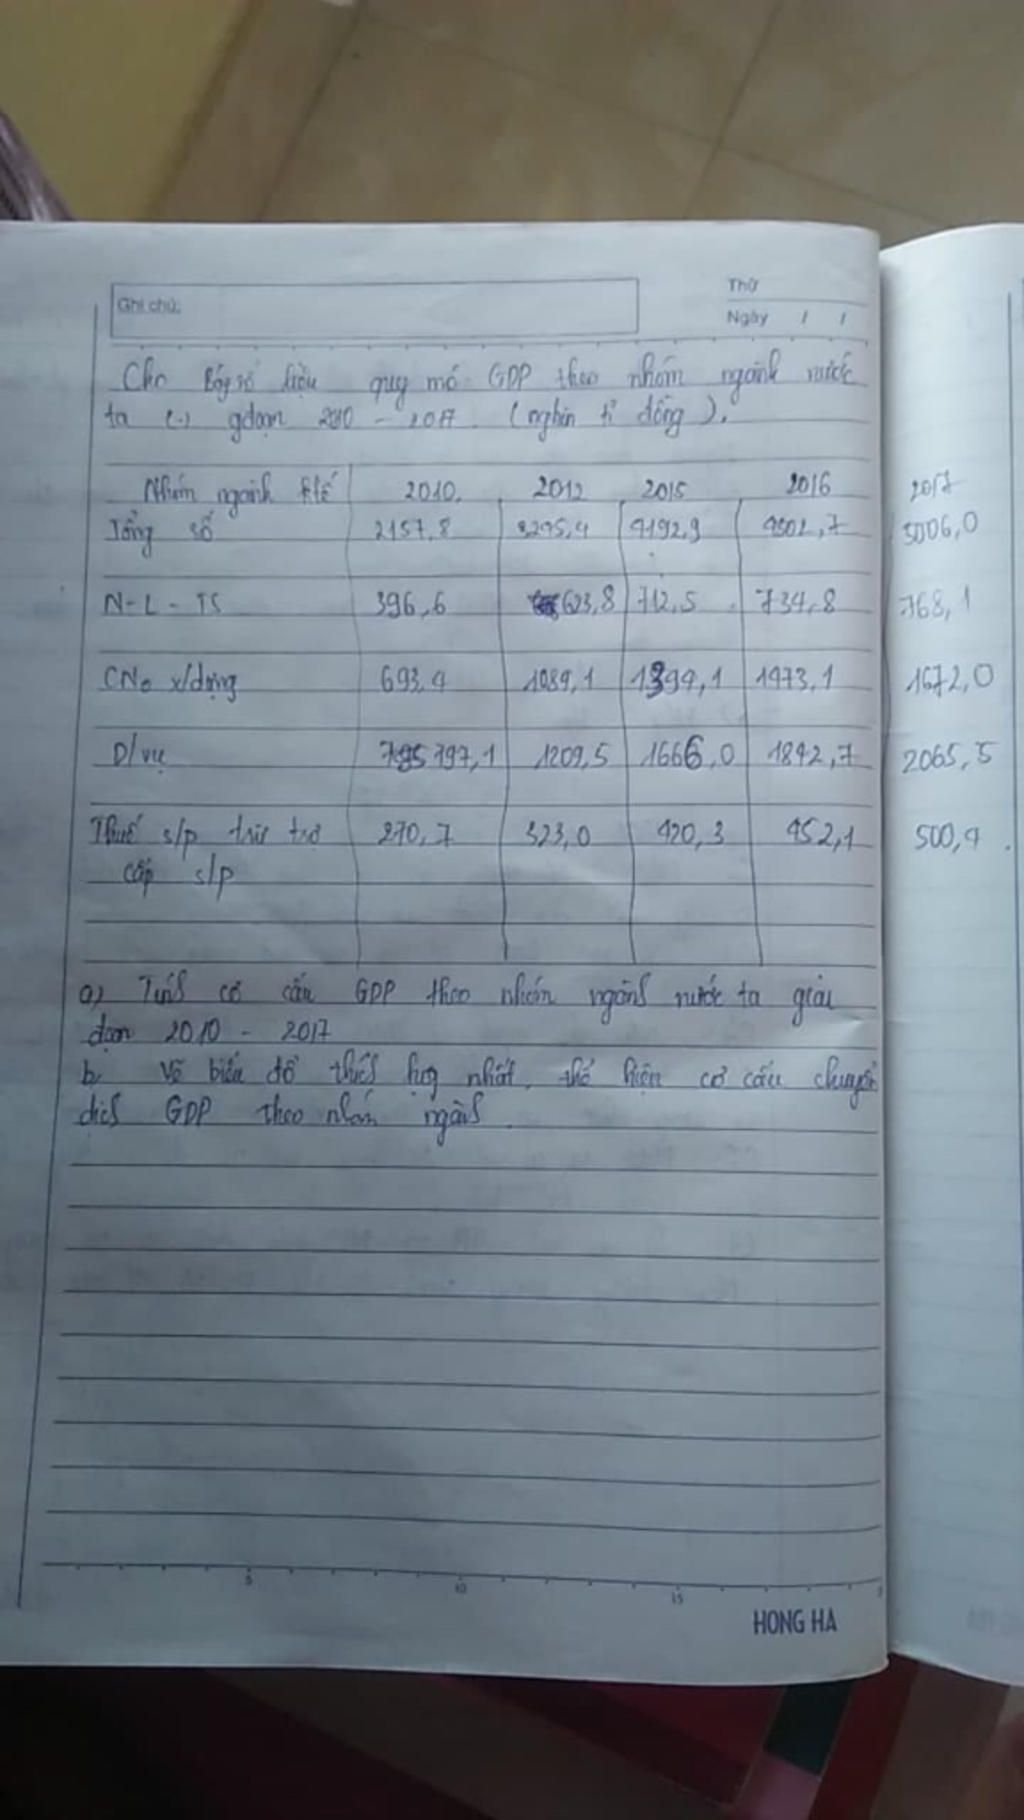 Ghi chú:
Thứ
Ngày / /
Cho Bảng số liệu quy mô GDP theo nhóm ngành nước
ta (-) gđoạn 2010 - 2017. (nghìn tỉ đồng).
Nhóm ngành Ktế 2010, 2012 2015 2016 2017
Tổng số 2157,8 3245,4 4192,9 4502,7 5006,0
N-L-TS 396,6 623,8 712,5 734,8 768,1
CNo x/dựng 693,4 1089,1 1394,1 1473,1 1672,0
D/vụ 797,1 1209,5 1666,0 1842,7 2065,5
Thuế s/p trừ trợ 270,7 323,0 420,3 452,1 500,4.
cấp s/p
a) Tính cơ cấu GDP theo nhóm ngành nước ta giai
đoạn 2010 - 2017
b, Vẽ biểu đồ thích hợp nhất, thể hiện cơ cấu chuyển
dịch GDP theo nhóm ngành.
5 10 15
HONG HA